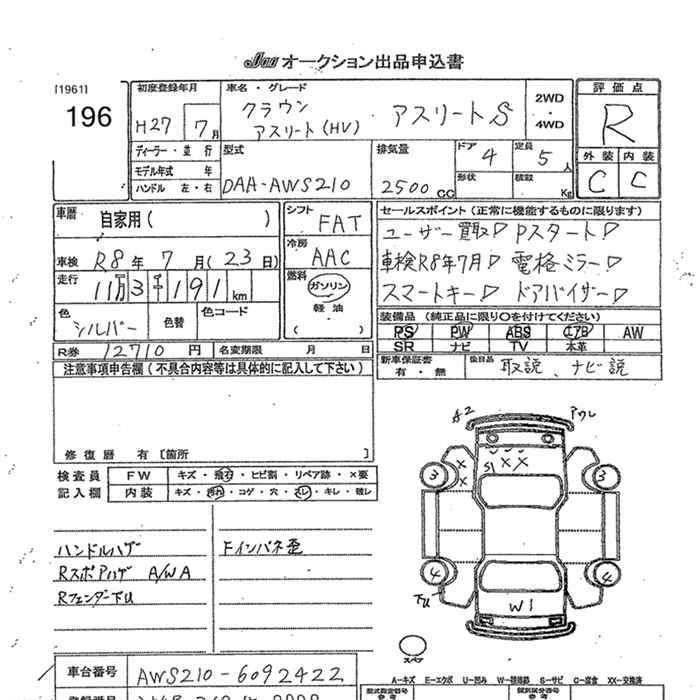 JAA オークション出品申込書
[1961]
196
初度登録年月
H27 7月
車名・グレード
クラウン
アスリート(HV) アスリートS
2WD
・
4WD
評価点
R
外装 内装
C C
ディーラー・並行
モデル年式 年
ハンドル 左・右
型式
DAA-AWS210
排気量
2500 CC
ドア
4
定員
5人
形状
積載
Kg
車歴
自家用( )
車検 R8年 7月(23日)
走行
11万3千191km
色
シルバー
色替
色コード
シフト
FAT
冷房
AAC
燃料
ガソリン
軽油
( )
セールスポイント(正常に機能するものに限ります)
ユーザー買取 Pスタート
車検R8年7月 電格ミラー
スマートキー ドアバイザー
装備品(純正品に限り○を付けてください)
PS PW ABS エアB AW
SR ナビ TV 本革
R券 12710円 名変期限 月 日
新車保証書
有・無
後日品
取説、ナビ説
注意事項申告欄(不具合内容等は具体的に記入して下さい)
修復歴 有[箇所 ]
検査員 FW キズ・飛石・ヒビ割・リペア跡・×要
記入欄 内装 キズ・汚れ・コゲ・穴・スレ・キレ・破レ
ハンドルハゲ
Rスポアハゲ A/WA
RフェンダーTU
Fインパネ歪
A2
S1
××
×
×
3
3
4
4
下U
W1
スペア
車台番号 AWS210-6092422
A─キズ E─エクボ U─凹み S─サビ C─腐食 XX─交換済